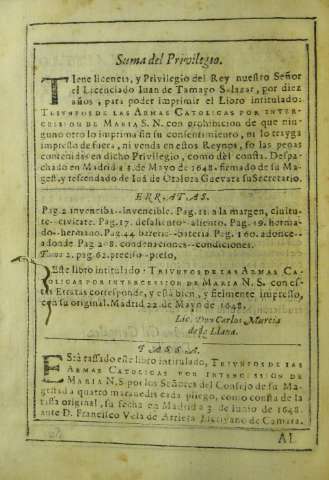 Suma del Privilegio.
TIene licencia, y Privilegio del Rey nuestro Señor
el Licenciado Iuan de Tamayo Salazar, por diez
años, para poder imprimir el Libro intitulado:
TRIVNFOS DE LAS ARMAS CATOLICAS POR INTER-
CESSION DE MARIA S. N. con prohibicion de que nin-
guno otro lo imprima sin su consentimiento, ni lo trayga
impresso de fuera, ni venda en estos Reynos, so las penas
contenidas en dicho Privilegio, como dèl consta. Despa-
chado en Madrid a 3. de Mayo de 1648. firmado de su Ma-
gest. y refrendado de Iuã de Otalora Guevara su Secretario.
ERRATAS.
Pag. 2 invenciba--invencible. Pag. 11. a la margen, ciuitu-
te--civitate. Pag. 17. desaliento--aliento. Pag. 19. herma-
do--hermano. Pag. 44 bareria--bateria. Pag. 160. adonce--
adonde Pag. 208. condenaciones--condiciones.
Tomo 2. pag. 62. preciso--preso,
ESte libro intitulado: TRIVNFOS DE LAS ARMAS CA-
TOLICAS POR INTERCESSION DE MARIA N. S. con es-
tas Erratas corresponde, y està bien, y fielmente impresso,
con su original. Madrid 22. de Mayo de 1648.
Lic. Don Carlos Murcia
de la Llana.
TASSA.
EStà tassado este libro intitulado, TRIVNFOS DE LAS
ARMAS CATOLICAS POR INTERCESSION DE
MARIA N. S por los Señores del Consejo de su Ma-
gestad a quatro maravedis cada pliego, como consta de la
tassa original, su fecha en Madrid a 3 de Iunio de 1648.
ante D. Francisco Vela de Arrieta Escrivano de Camara.
Al